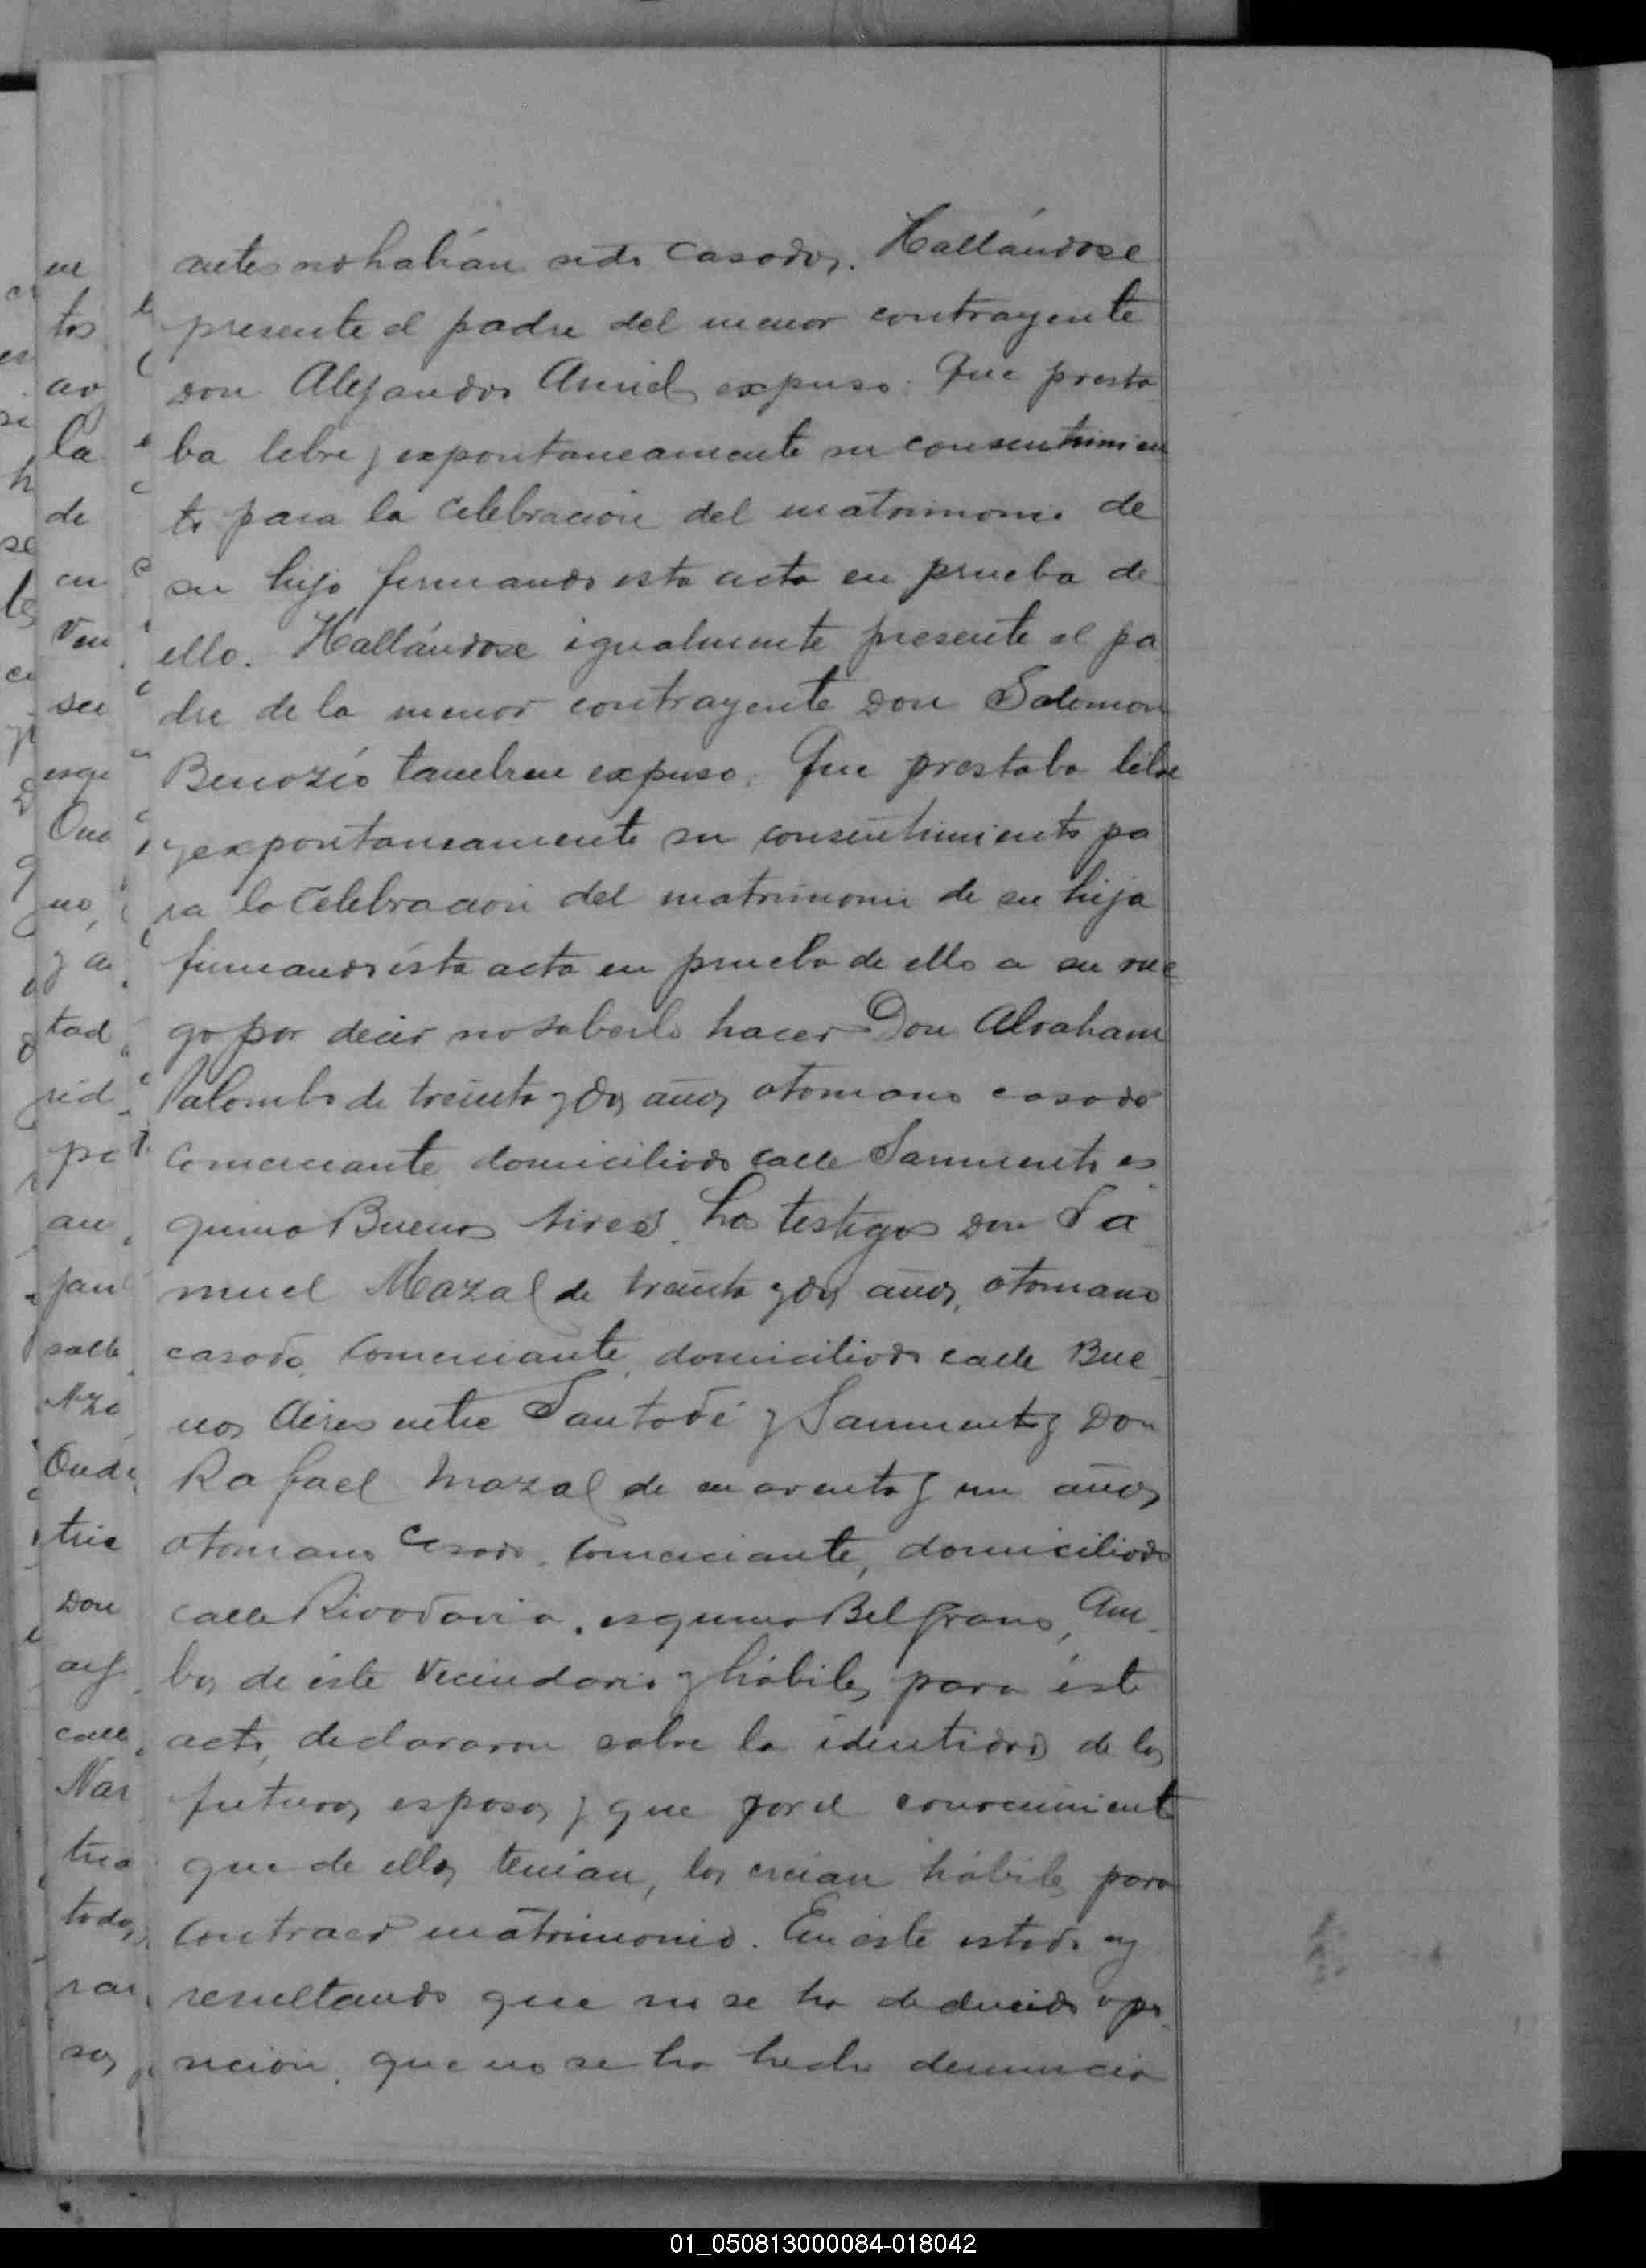 antes no habían sido casados. Hallándose
presente el padre del menor contrayente
Don Alejandro Amiel expuso: Que presta
ba libre y expontaneamente su consentimien
to para la celebracion del matrimonio de
su hijo firmando esta acta en prueba de
ello. Hallándose igualmente presente el pa
dre de la menor contrayente Don Salomon
Benozio tambien expuso: Que prestaba libre
y expontaneamente su consentimiento pa
ra la celebracion del matrimonio de su hija
firmando ésta acta en prueba de ello a su rue
go por decir no saberlo hacer Don Abraham
Palombo de treinta y dos años otomano casado
comerciante domiciliado calle Sarmiento es
quina Buenos Aires. Los testigos Don Sa
muel Mazal de treinta y dos años, otomano
casado, comerciante, domiciliado calle Bue
nos Aires entre Santa Fé y Sarmiento y Don
Rafael Mazal de cuarenta y un años
otomano casado, comerciante, domiciliado
calle Rivadavia, esquina Belgrano, Am
bos de éste vecindario y hábiles para éste
acto, declararon sobre la identidad de los
futuros esposos y que por el conocimient
que de ellos tenían, los creian hábiles para
contraer matrimonio. En éste estado y
resultando que no se ha deducido opo
sición, que no se ha hecho denuncia
01_050813000084-018042